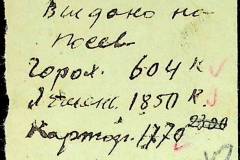 Выдано на
посев
Горох. 604 к
Ячмень. 1850 к
Картоф. 1770